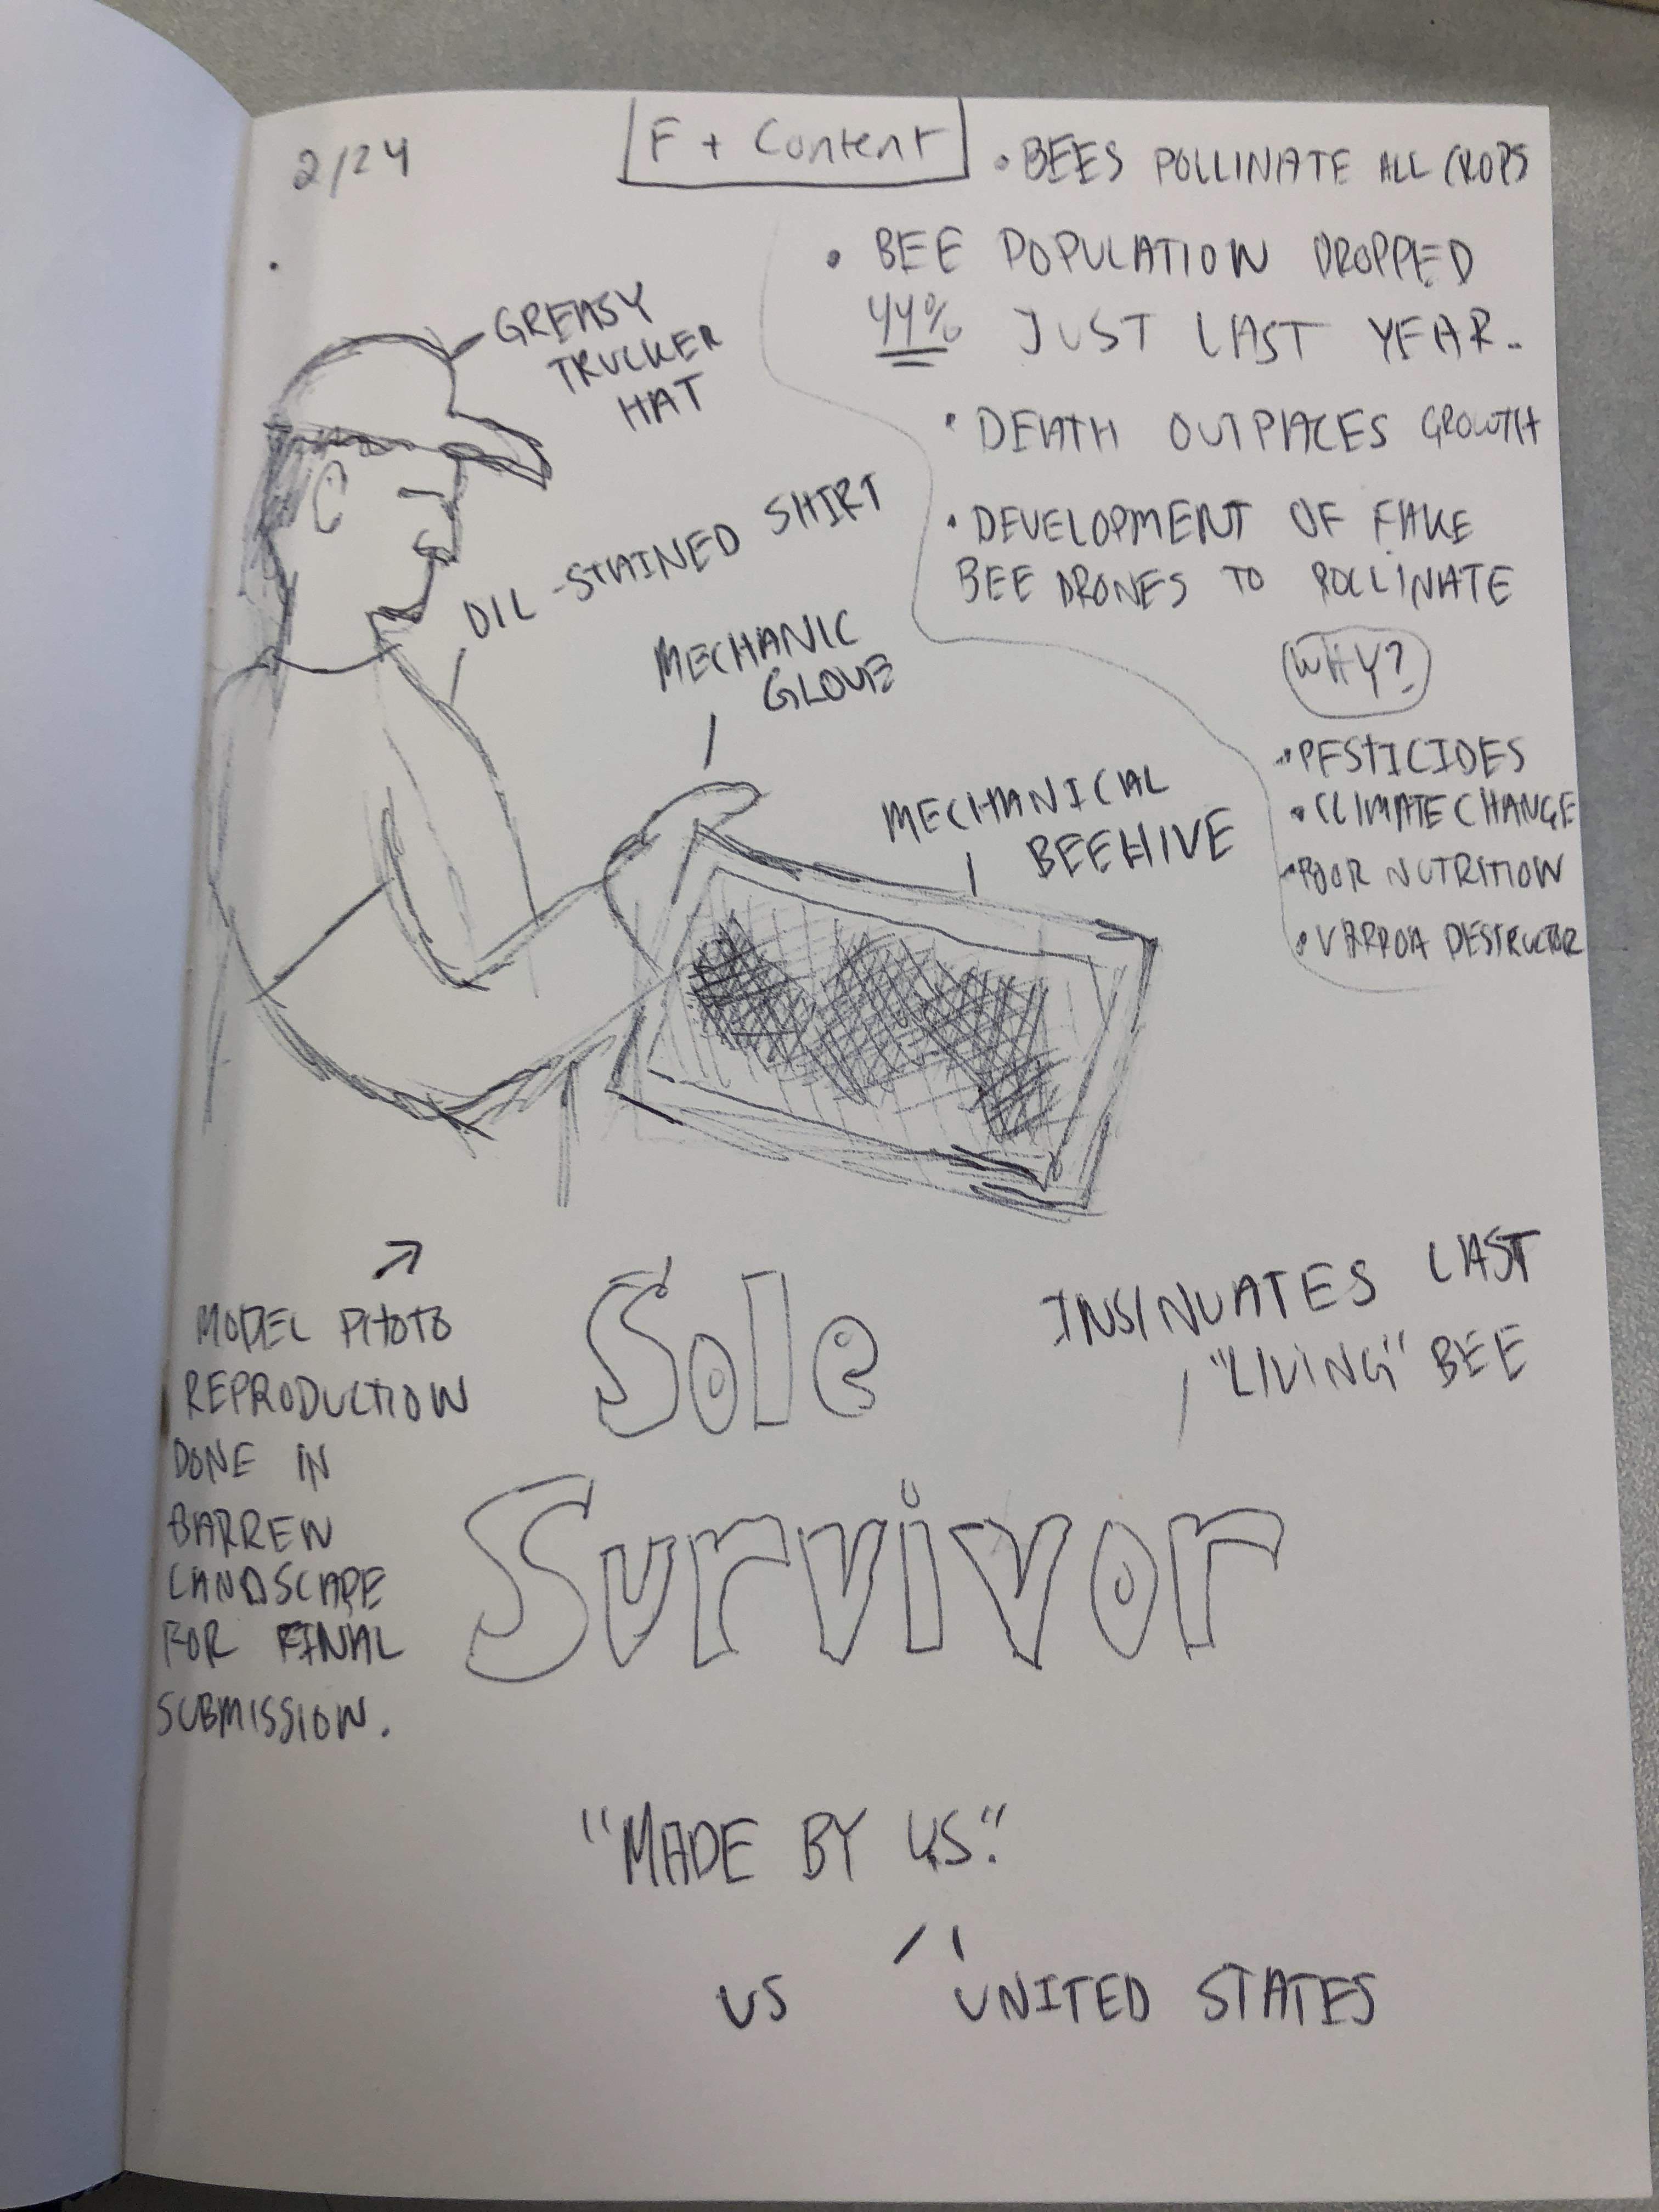 2/24
F + Content
• BEES POLLINATE ALL CROPS
• BEE POPULATION DROPPED
44% JUST LAST YEAR..
• DEATH OUTPACES GROWTH
• DEVELOPMENT OF FAKE
BEE DRONES TO POLLINATE
WHY?
• PESTICIDES
• CLIMATE CHANGE
• POOR NUTRITION
• VARROA DESTRUCTOR
GREASY
TRUCKER
HAT
OIL-STAINED SHIRT
MECHANIC
GLOVE
MECHANICAL
BEEHIVE
MODEL PHOTO
REPRODUCTION
DONE IN
BARREN
LANDSCAPE
FOR FINAL
SUBMISSION.
Sole
Survivor
INSINUATES LAST
"LIVING" BEE
"MADE BY US."
US
UNITED STATES